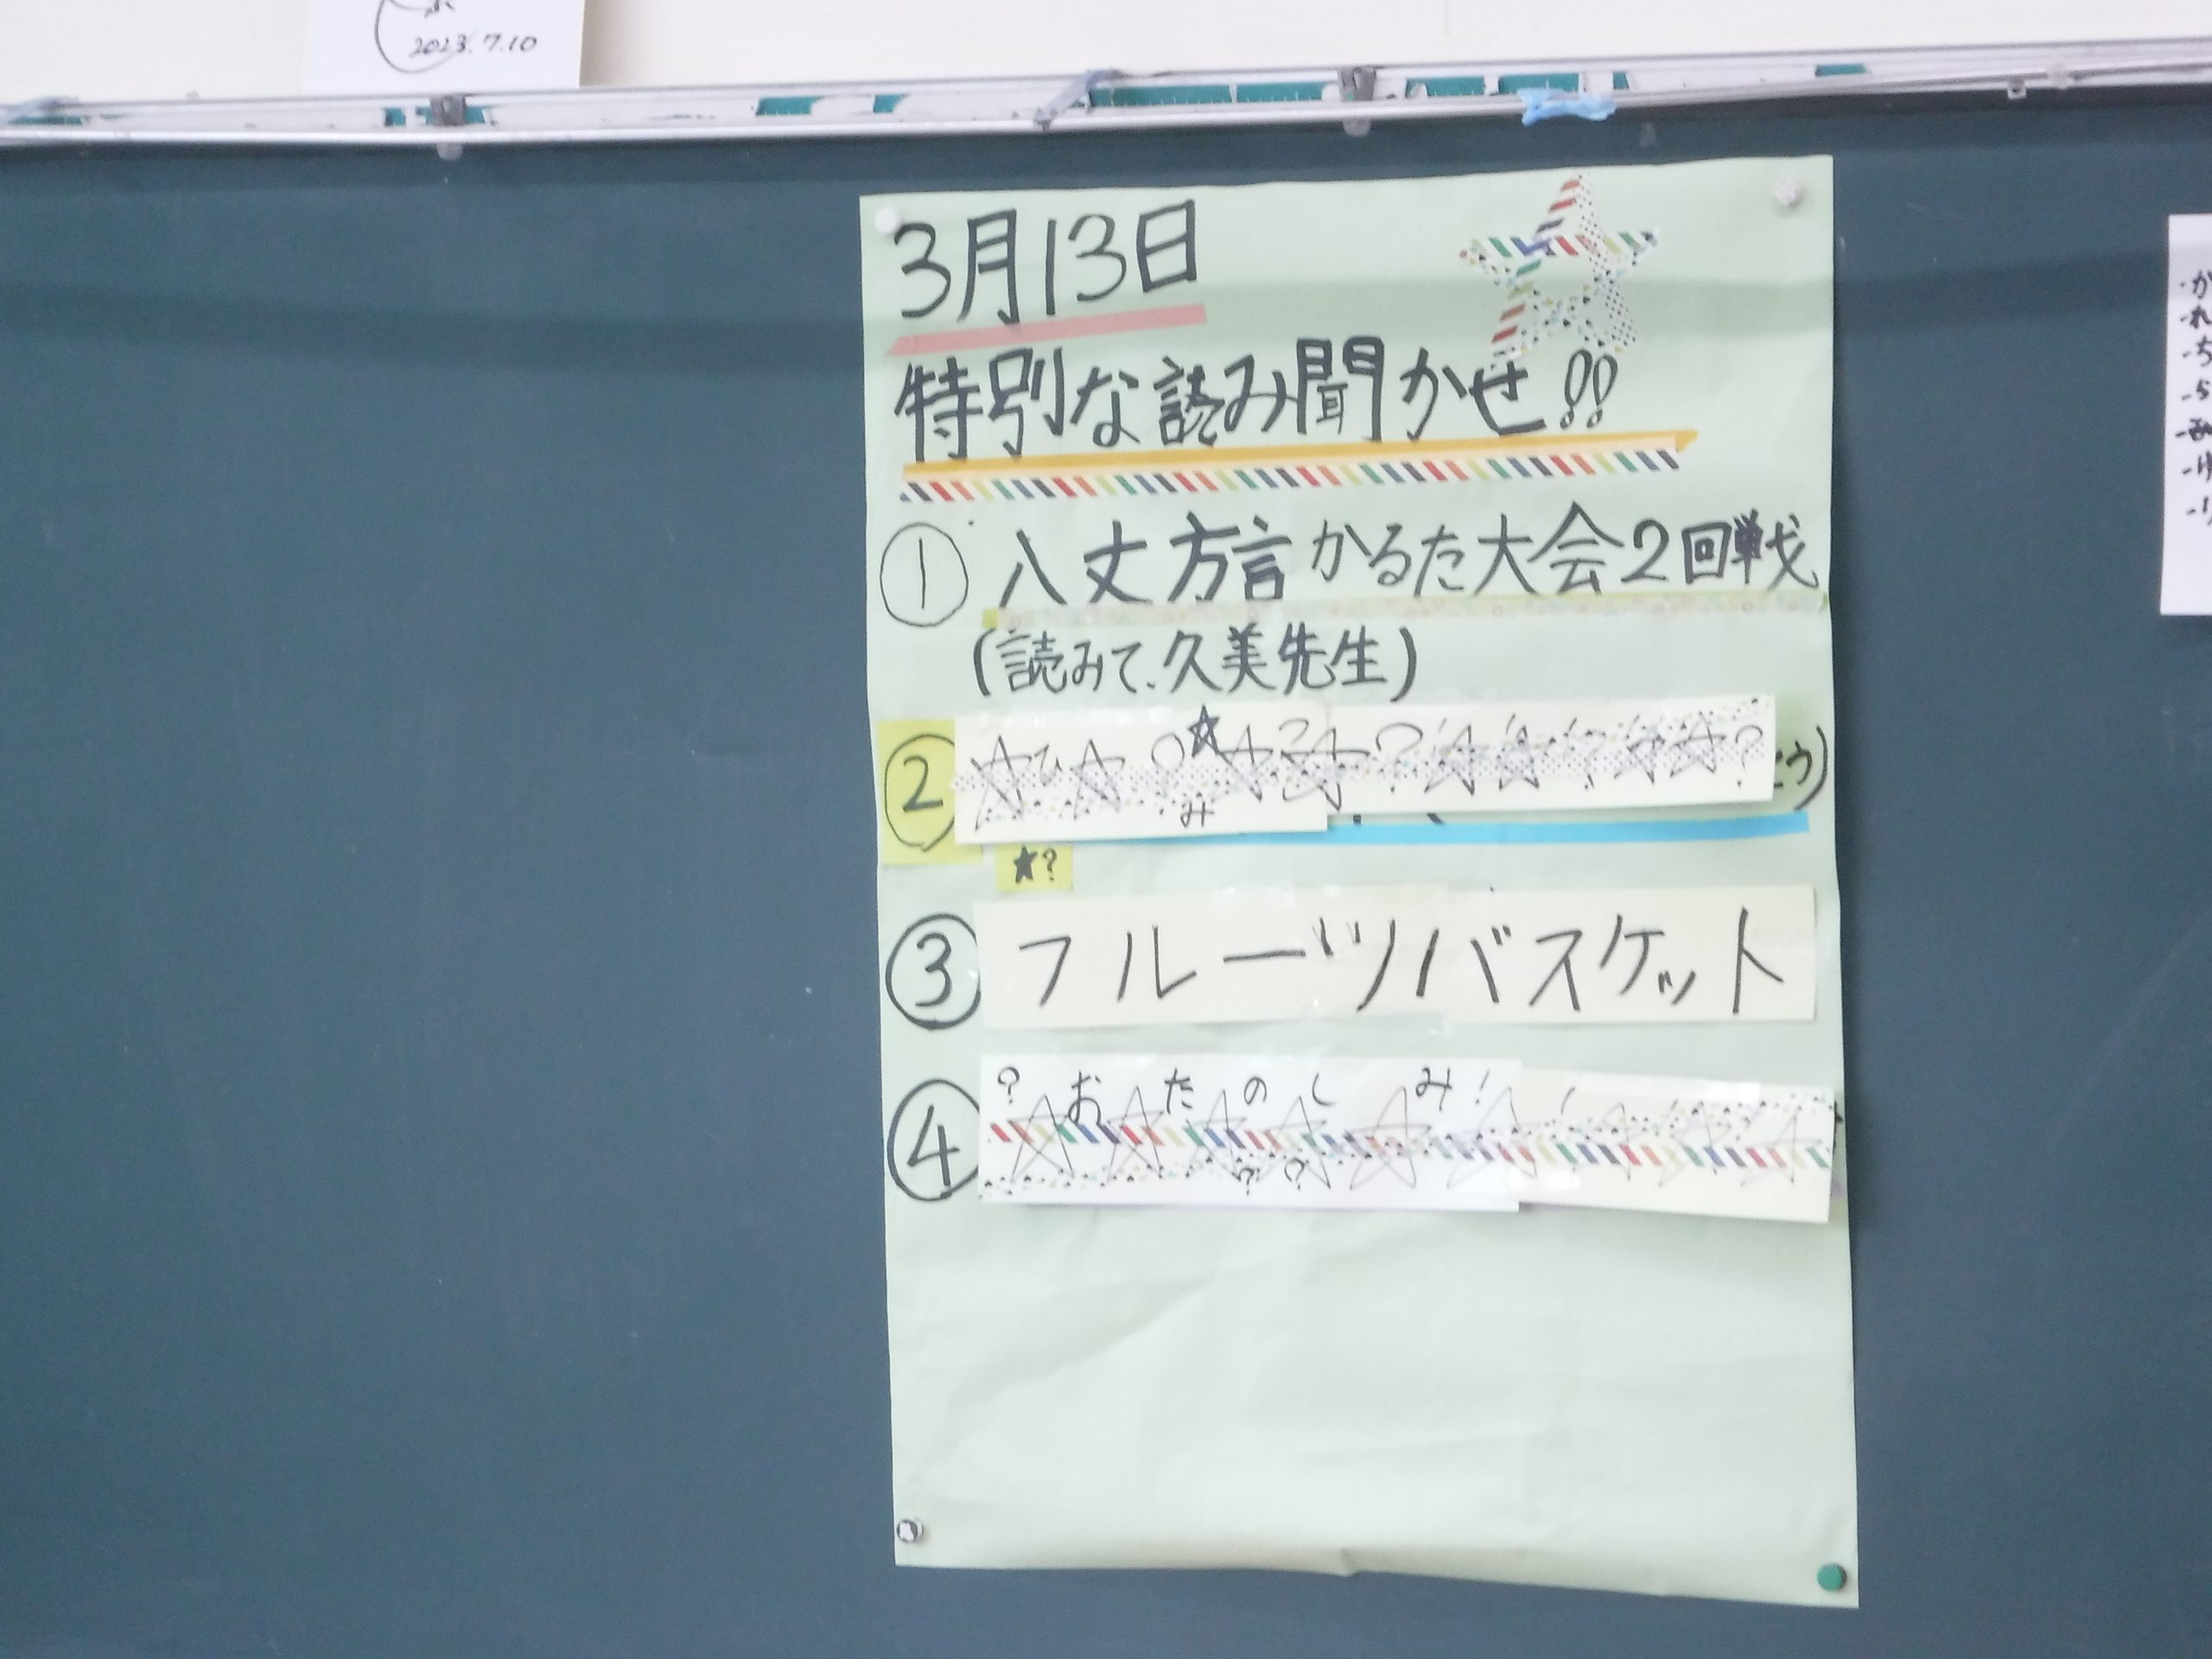 2023.7.10
3月13日
特別な読み聞かせ!!
① 八丈方言かるた大会2回戦
(読みて、久美先生)
②
み
★?
③ フルーツバスケット
④ ?おたのしみ!
? ?